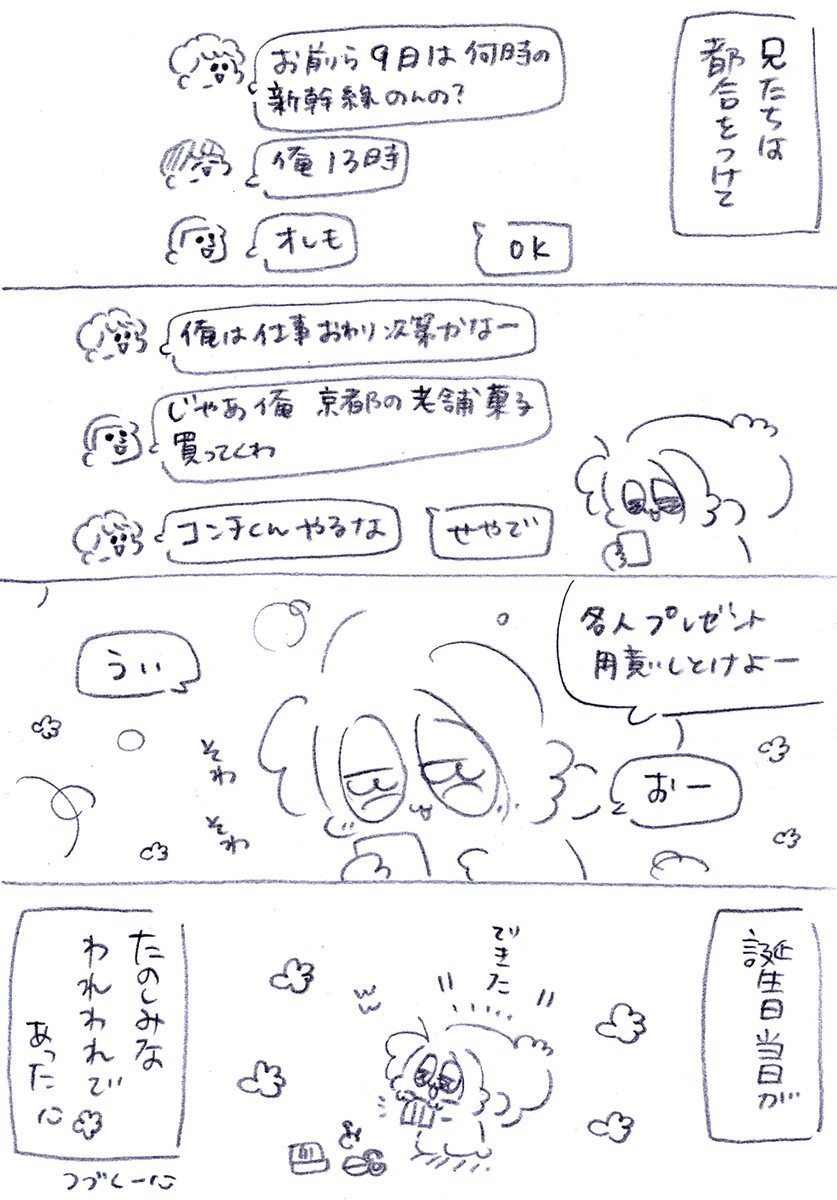 兄たちは
都合をつけて
お前ら9日は何時の
新幹線のんの?
俺13時
オレも
OK
俺は仕事おわり次第かなー
じゃあ俺 京都の老舗菓子
買ってくわ
コンチくんやるな
せやで
各人プレゼント
用意しとけよー
おー
うぃ
そわ
そわ
誕生日当日が
できた
たのしみな
われわれで
あったに
つづくーに